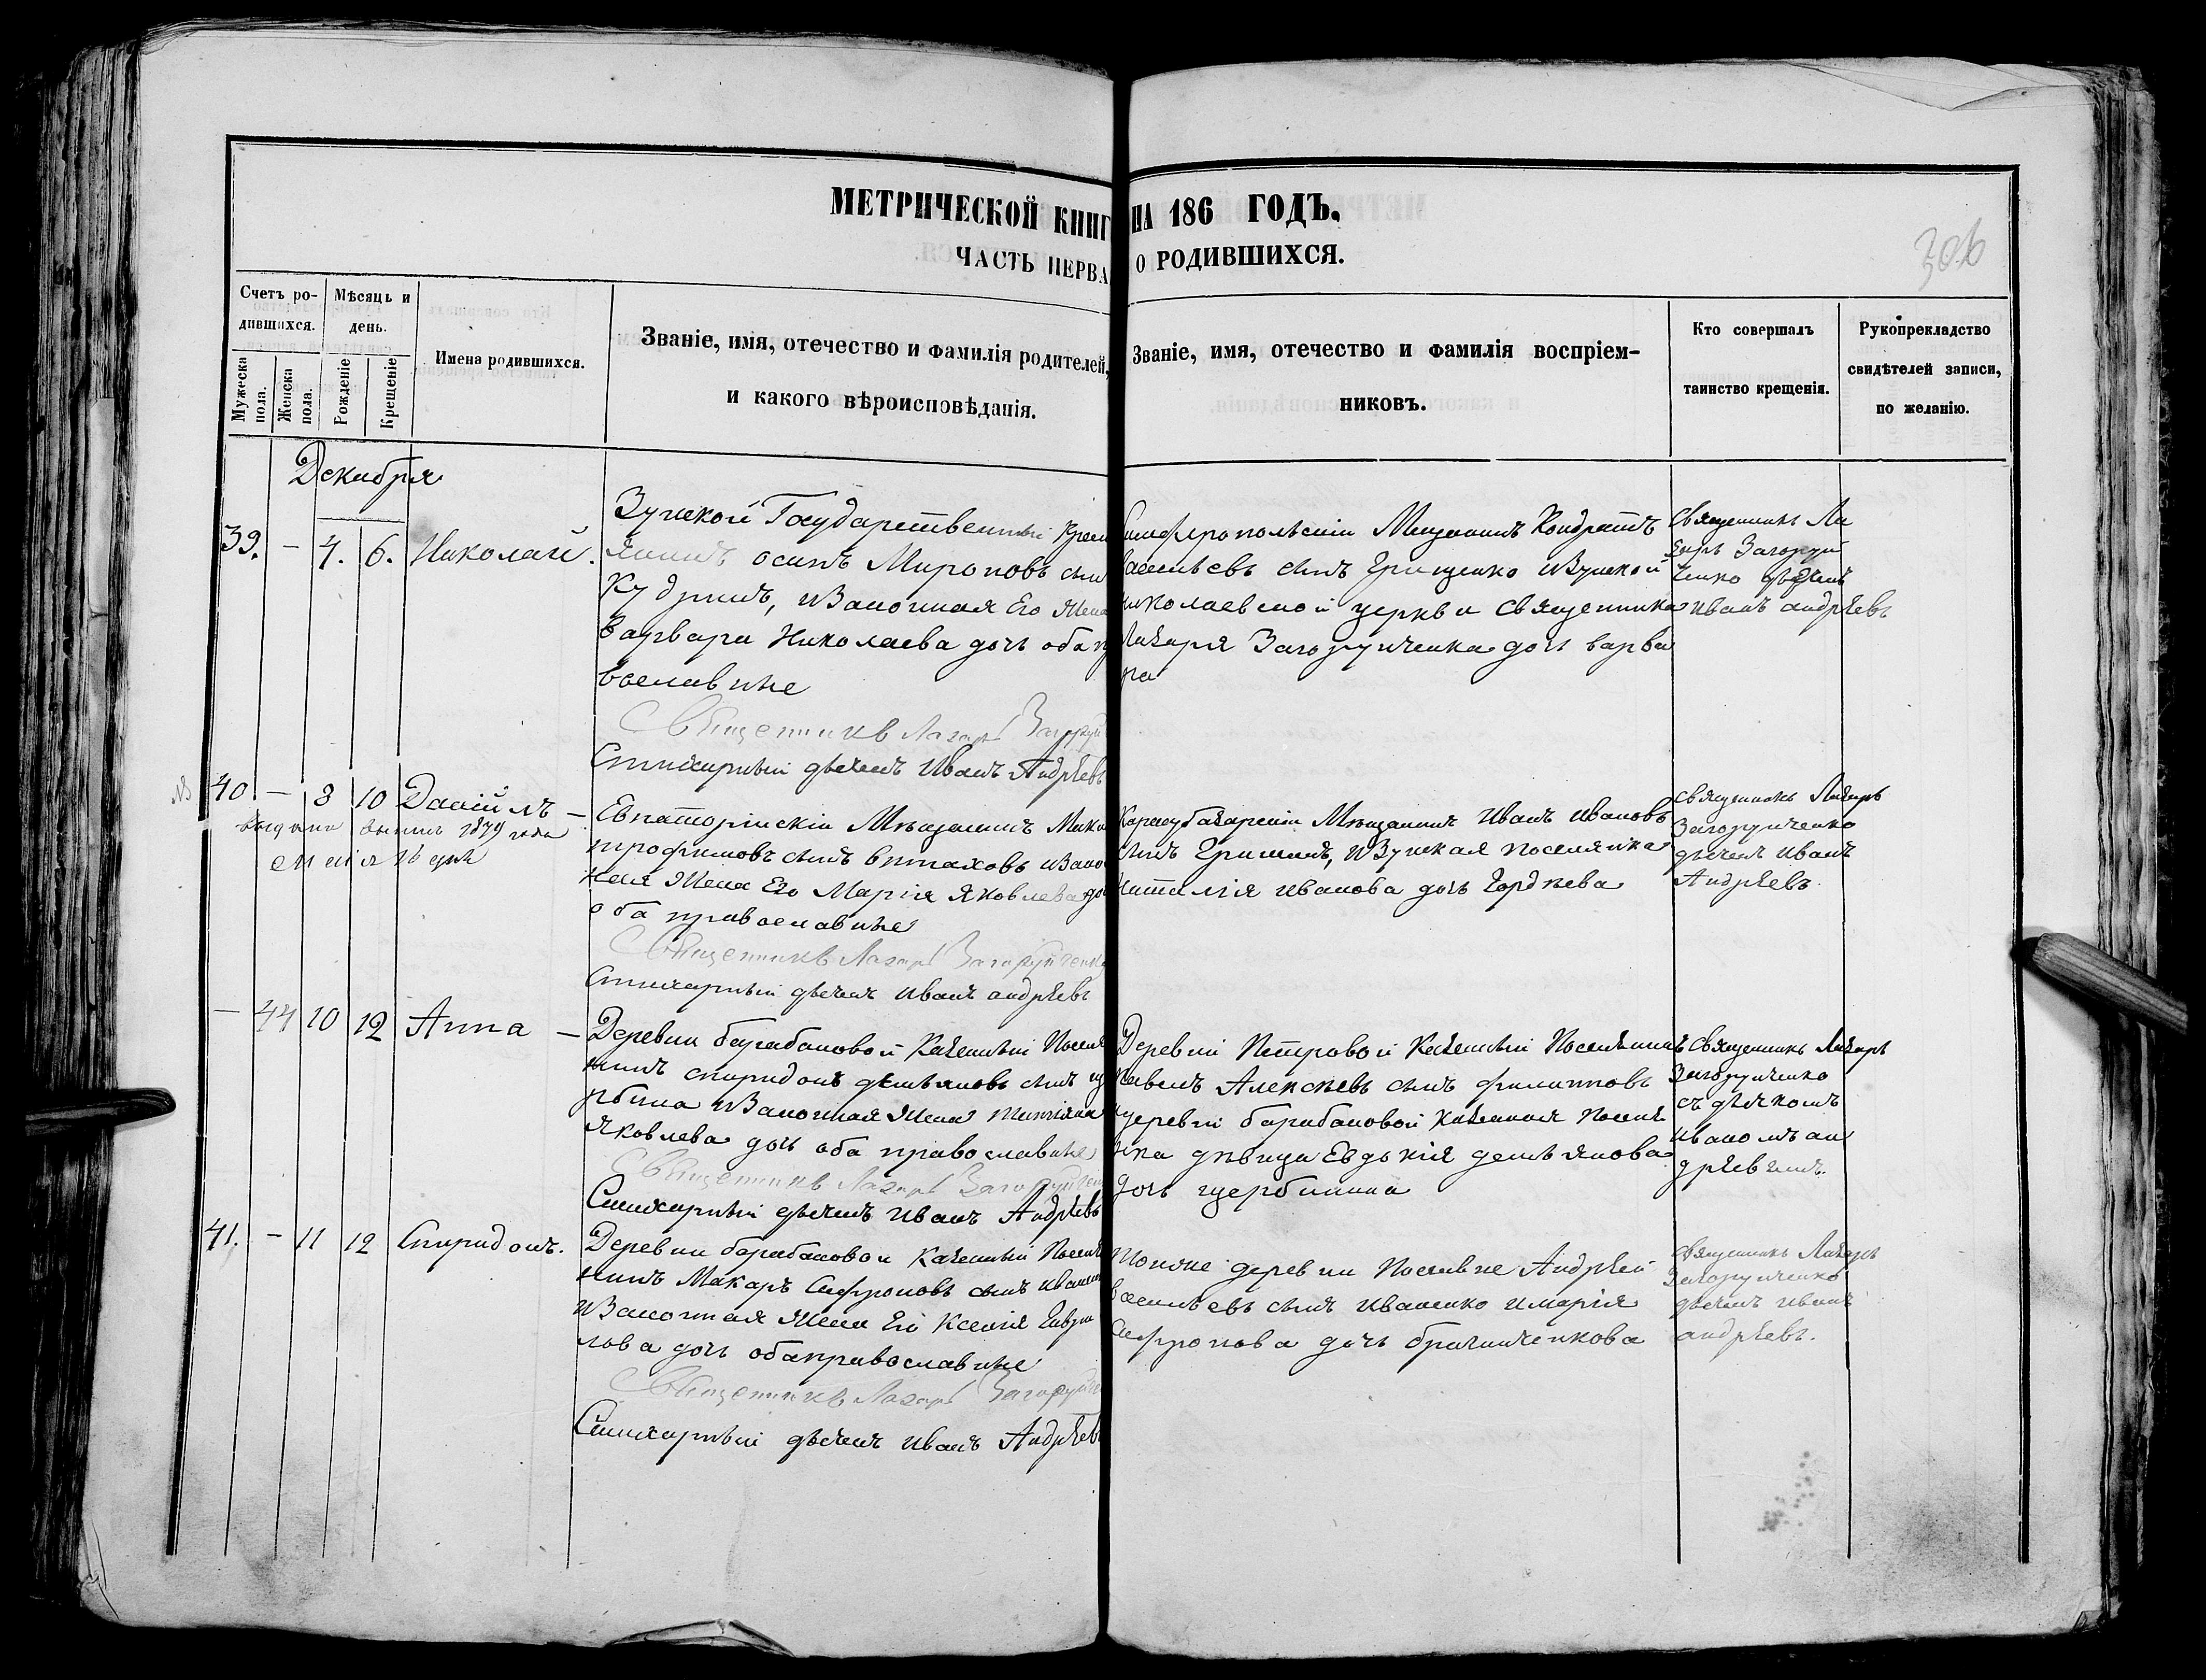 МЕТРИЧЕСКОЙ КНИГ НА 186 ГОДЪ.
ЧАСТЬ ПЕРВА О РОДИВШИХСЯ.
306
Счетъ ро-
дившихся.
Мужеска
пола.
Женска
пола.
Мѣсяцъ и
день.
Рожденіе
Крещеніе
Имена родившихся.
Званіе, имя, отечество и фамилія родителей,
и какого вѣроисповѣданія.
Званіе, имя, отечество и фамилія воспріем-
никовъ.
Кто совершалъ
таинство крещенія.
Рукоприкладство
свидѣтелей записи,
по желанію.
Декабря
39. – 4. 6. Николай.
Зуйской Государственный Крест
янинъ осипъ Мироновъ сынъ
Кудринъ, изаконная Его Жена
Варвара Николаева дочь оба пр
вославные
Священникъ Лазарь Загоруй
Стихарный дьячекъ Иванъ Андрѣевъ
Симферопольскій Мещанинъ Кондратъ
Васильевъ сынъ Грищенко иЗуйской
николаевской церкви Священника
Лазаря Загоруйченка дочь варва
ра
Священникъ Ла
зарь Загоруй
ченко дьячекъ
иванъ андрѣевъ
№ 40. – 8 10 Даніилъ –
выдана 1879 года
Евпаторійскій Мѣщанинъ
трофимовъ сынъ изако
ная Жена Его Марія Яковлева до
оба православные
Священникъ Лазарь Загоруйченко
Стихарный дьячекъ Иванъ андрѣевъ
Карасубазарскій Мѣщанинъ Иванъ Ивановъ
сынъ Гришинъ, иЗуйская поселянка
Наталія иванова дочь Гордѣева
Священникъ Лазарь
Загоруйченко
дьячекъ Иванъ
Андрѣевъ
– 44 10 12 Анна –
Деревни барабановой Казенный Поселя
нинъ спиридонъ демьяновъ сынъ щ
рбина изаконная Жена
Яковлева дочь оба православные
Священникъ Лазарь Загоруйчен
Стихарный дьячекъ Иванъ Андрѣевъ
Деревни Петровой Казенный Поселянинъ
Павелъ Алексѣевъ сынъ филипповъ
идеревни барабановой Казенная Посел
нка дѣвица Евдокія демьянова
дочь щербинина
Священникъ Лазарь
Загоруйченко
съ дьякомъ
иваномъ ан
дрѣевымъ.
41. – 11 12 Спиридонъ.
Деревни барабановой Казенный Посел
нинъ Макаръ Сафроновъ сынъ
изаконная Жена Его Ксенія Гаври
лова дочь оба православные
Священникъ Лазарь Загоруй
Стихарный дьячекъ Иванъ Андрѣевъ
деревни Андрѣй
васильевъ сынъ Иваненко имарія
Сафронова дочь
Священникъ Лазарь
Загоруйченко
дьячекъ иванъ
андрѣевъ.